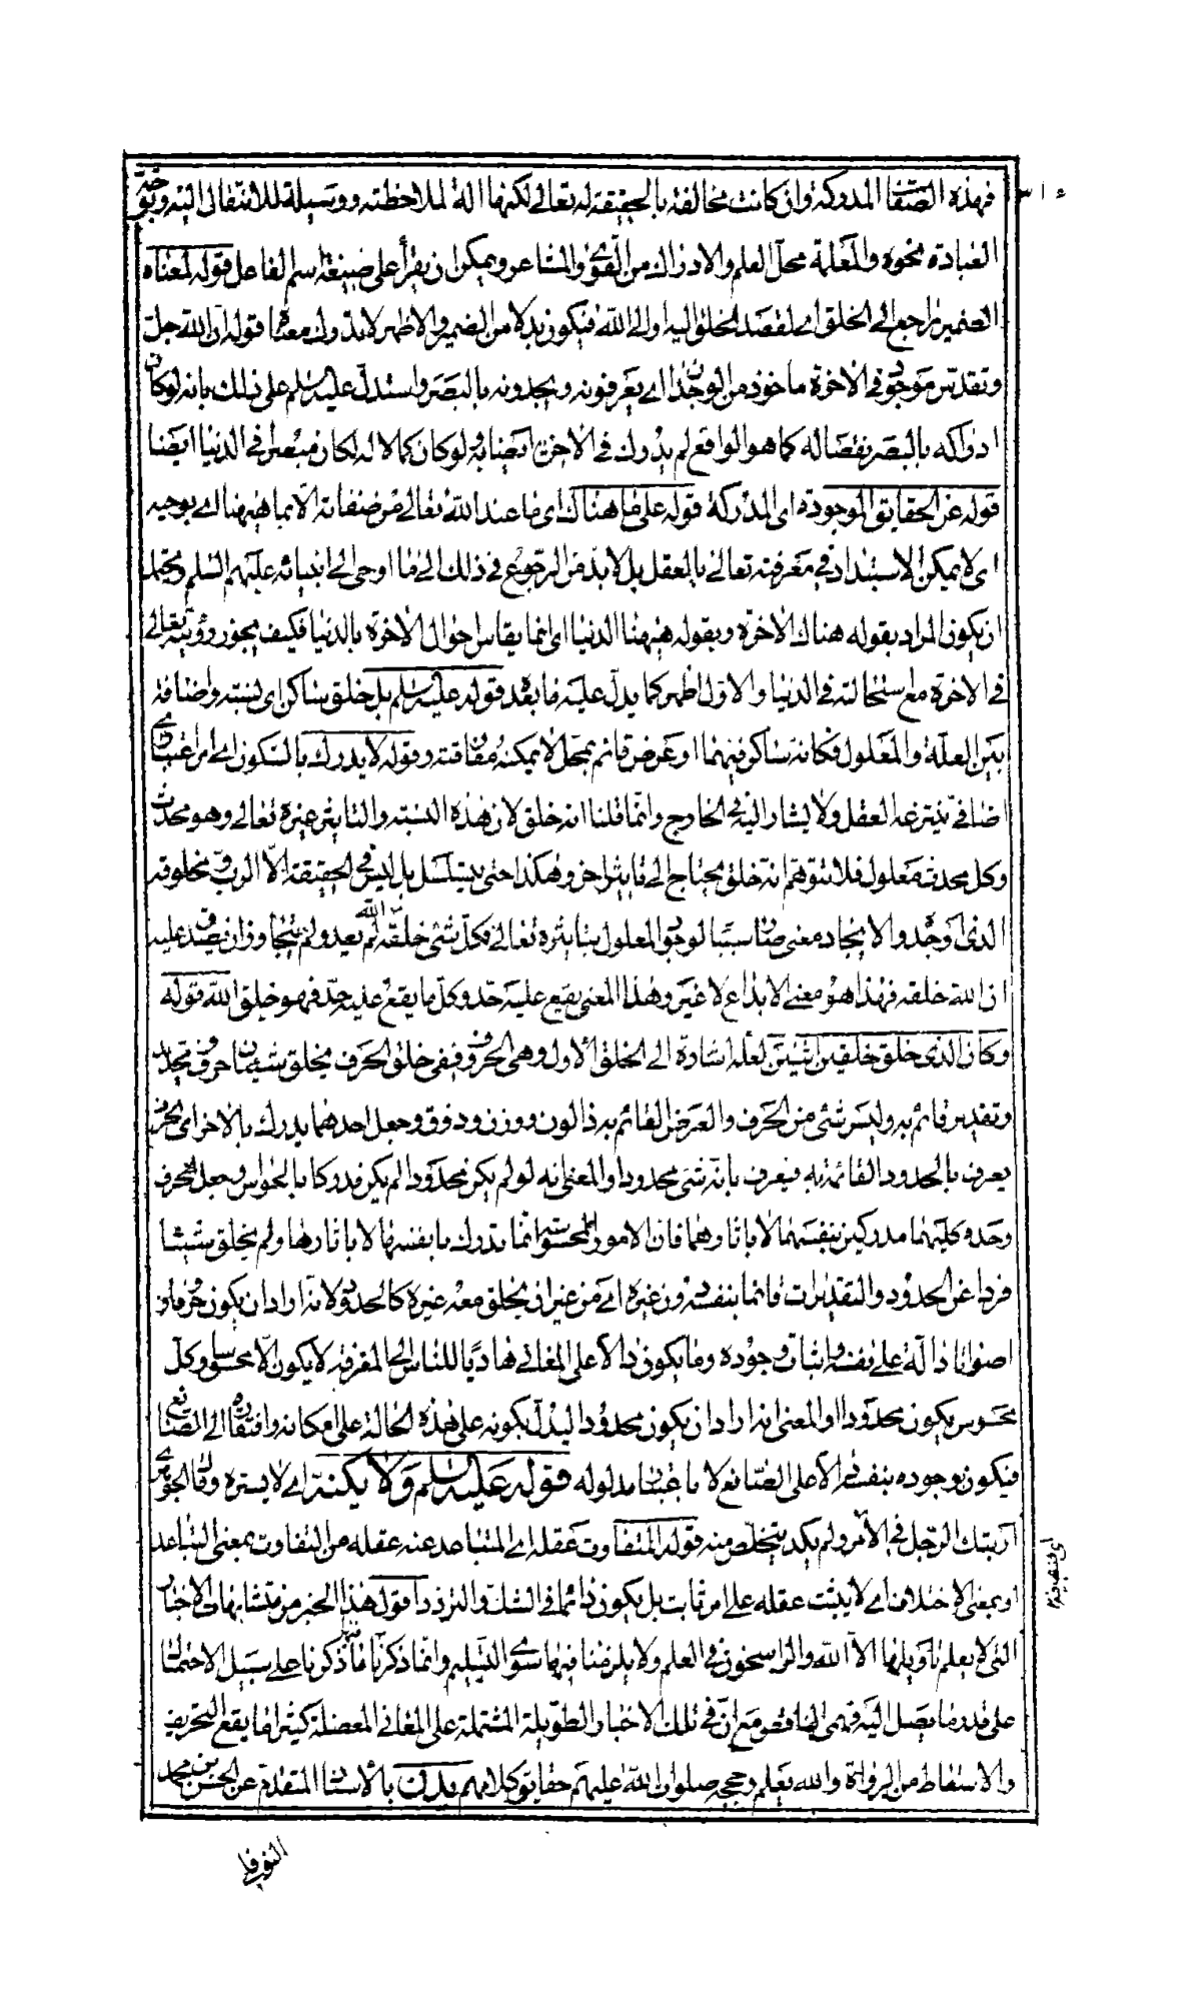 فهذه الصفات المدركة وان كانت مخالفة بالحقيقة له تعالى لكنها آلة لملاحظته ووسيلة للانتقال اليه وتوجه
العبادة نحوه والمعلمة محل العلم والادراك من القوى والمشاعر ويمكن ان يقرأ على صيغة اسم الفاعل قوله لمعناه
الضمير راجع الى الخلق اي لقصد الخلق اليه او الى الله فيكون بدلا من الضمير والاظهر لا يدرك معناه قوله ان الله جل
وتقدس موجود في الاخرة ماخوذ من الوجدان اي يعرفونه ويجدونه بالبصر واستدل عليه السلم على ذلك بانه لو كان
ادراكه بالبصر نقصا له كما هو الواقع لم يدرك في الاخرة ايضا به ولو كان كمالا له لكان مبصرا في الدنيا ايضا
قوله عن الحقايق الموجودة اي المدركة قوله على ما هناك اي ما عند الله تعالى من صفاته الا بما هيهنا اي بوحيه
اي لا يمكن الاستبداد في معرفته تعالى بالعقل بل لا بد من الرجوع في ذلك الى ما اوحى الى انبيائه عليهم السلم ويحتمل
ان يكون المراد بقوله هناك الاخرة وبقوله هيهنا الدنيا اي انما يقاس احوال الاخرة بالدنيا فكيف يجوز رؤيته تعالى
في الاخرة مع استحالته في الدنيا والاول اظهر كما يدل عليه ما بعده قوله عليه السلم بل خلق ساكن اي نسبة واضافة
بين العلة والمعلول فكانه ساكن فيهما او عرض قائم بمحل لا يمكنه مفارقته وقوله لا يدرك بالسكون اي امر اعتباري
اضافي ينتزعه العقل ولا يشار اليه في الخارج وانما قلنا انه خلق لان هذه النسبة والتاثير غيره تعالى وهو محدث
وكل محدث معلول فلا تتوهم انه خلق يحتاج الى تاثير اخر وهكذا حتى يتسلسل بل ليس في الحقيقة الا الرب ومخلوقه
الذي اوجده والايجاد معنى صار سببا لوجود المعلول بتاثيره تعالى فكل شئ خلقه الله لم يعد ولم يتجاوز ان يصدق عليه
ان الله خلقه فهذا هو معنى الابداع لا غير وهذا المعنى يقع عليه حد وكل ما يقع عليه حد فهو خلق الله قوله
وكان الذي خلق خلقين اثنين لعله اشارة الى الخلق الاول وهي الحروف ففي خلق الحرف يخلق شيئان حرف وتحديد
وتقدير قائم به وليس شئ من الحرف والعرض القائم به ذا لون ووزن وذوق وجعل احدهما يدرك بالاخر اي الحرف
يعرف بالحدود القائمة به فيعرف بانه شئ محدود او المعنى انه لو لم يكن محدودا لم يكن مدركا بالحواس وجعل الحرف
وحده كليهما مدركين بنفسهما لا باثارهما فان الامور المحسوسة انما تدرك بانفسها لا باثارها ولم يخلق شيئا
فردا عن الحدود والتقديرات قائما بنفسه دون غيره اي من غير ان يخلق معه غيره كالحدود لانه اراد ان يكون حروفا و
اصواتا دالة على نفسه واثبات وجوده وما يكون دالا على المعاني هاديا للناس الى المعرفة لا يكون الا محسوسا وكل
محسوس يكون محدودا او المعنى انه اراد ان يكون محدودا ليدل بكونه على هذه الحالة على امكانه وافتقاره الى الصانع
فيكون بوجوده بنفسه دالا على الصانع لا باعتبار مدلوله قوله عليه السلم ولا يكنه اي لا يستره وقال الجوهري
ارتبك الرجل في الامر ولم يكد يتخلص منه قوله المتفاوت عقله اي المتباعد عنه عقله من التفاوت بمعنى التباعد
او بمعنى الاختلاف اي لا يثبت عقله على امر ثابت بل يكون دائما في الشك والتردد اقول هذا الخبر من متشابهات الاخبار
التي لا يعلم تاويلها الا الله والراسخون في العلم ولا يلزمنا فيها سوى التسليم وانما ذكرنا ما ذكرنا على سبيل الاحتمال
على قدر ما يصل اليه فهمي الناقص مع ان في تلك الاخبار الطويلة المشتملة على المعاني المعضلة كثيرا ما يقع التحريف
والاسقاط من الرواة والله يعلم وحججه صلوات الله عليهم حقايق كلامهم يد ن بالاسناد المتقدم عن الحسن بن محمد
النوفلي